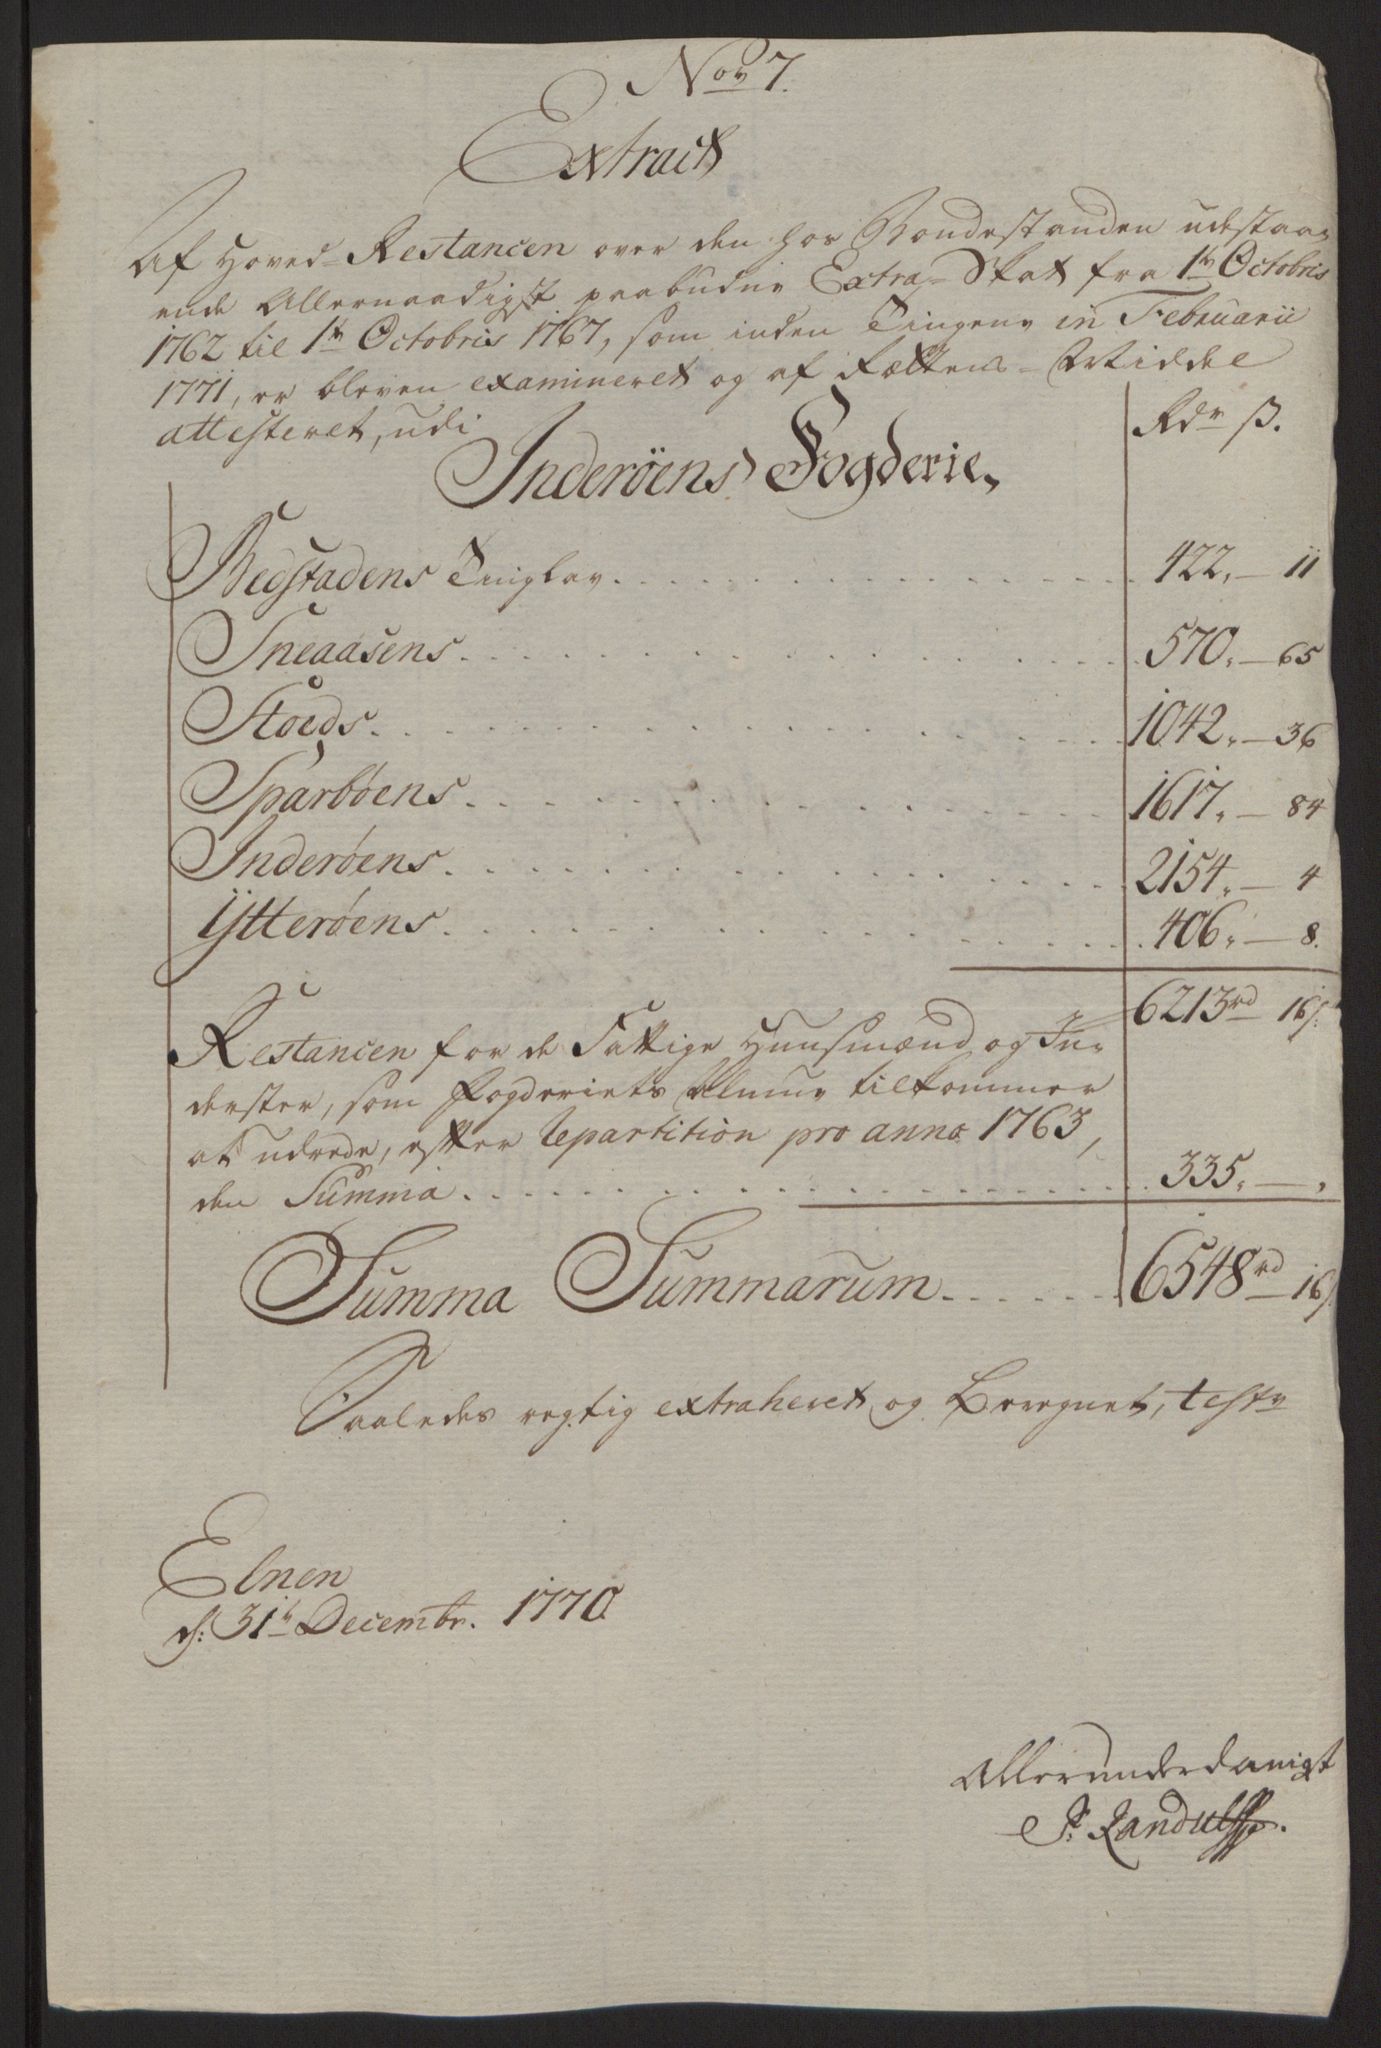 No 7.
Extract
Af Hoved-Restancen over den hos Bondestanden udestaa-
ende Allernaadigst paabudne Extra-Skat fra 1te Octobris
1762 til 1te Octobris 1767, som inden Tingene in Februarii
1771, er bleven examineret og af Rættens-Middel
attesteret, udi
Rdr ß.
Inderöens Fogderie,
Bedstadens Tinglav. 422. — 11
Sneaasens. 570. — 65
Stoeds. 1042. — 36
Sparböens. 1617. — 84
Inderöens. 2154. — 4
Ytteröens. 406. — 8.
6213rd 16ß:
Restancen for de Fattige Huusmænd og In-
derster, som Fogderiets Almue tilkommer
at udrede, efter Repartition pro anno 1763,
den Summa. 335. — ,
Summa Summarum. 6548rd 16ß.
Saaledes rigtig extraheret og Beregnet, teste
Elnen
d: 31te Decembr. 1770
Allerunderdanigst
Randulff.